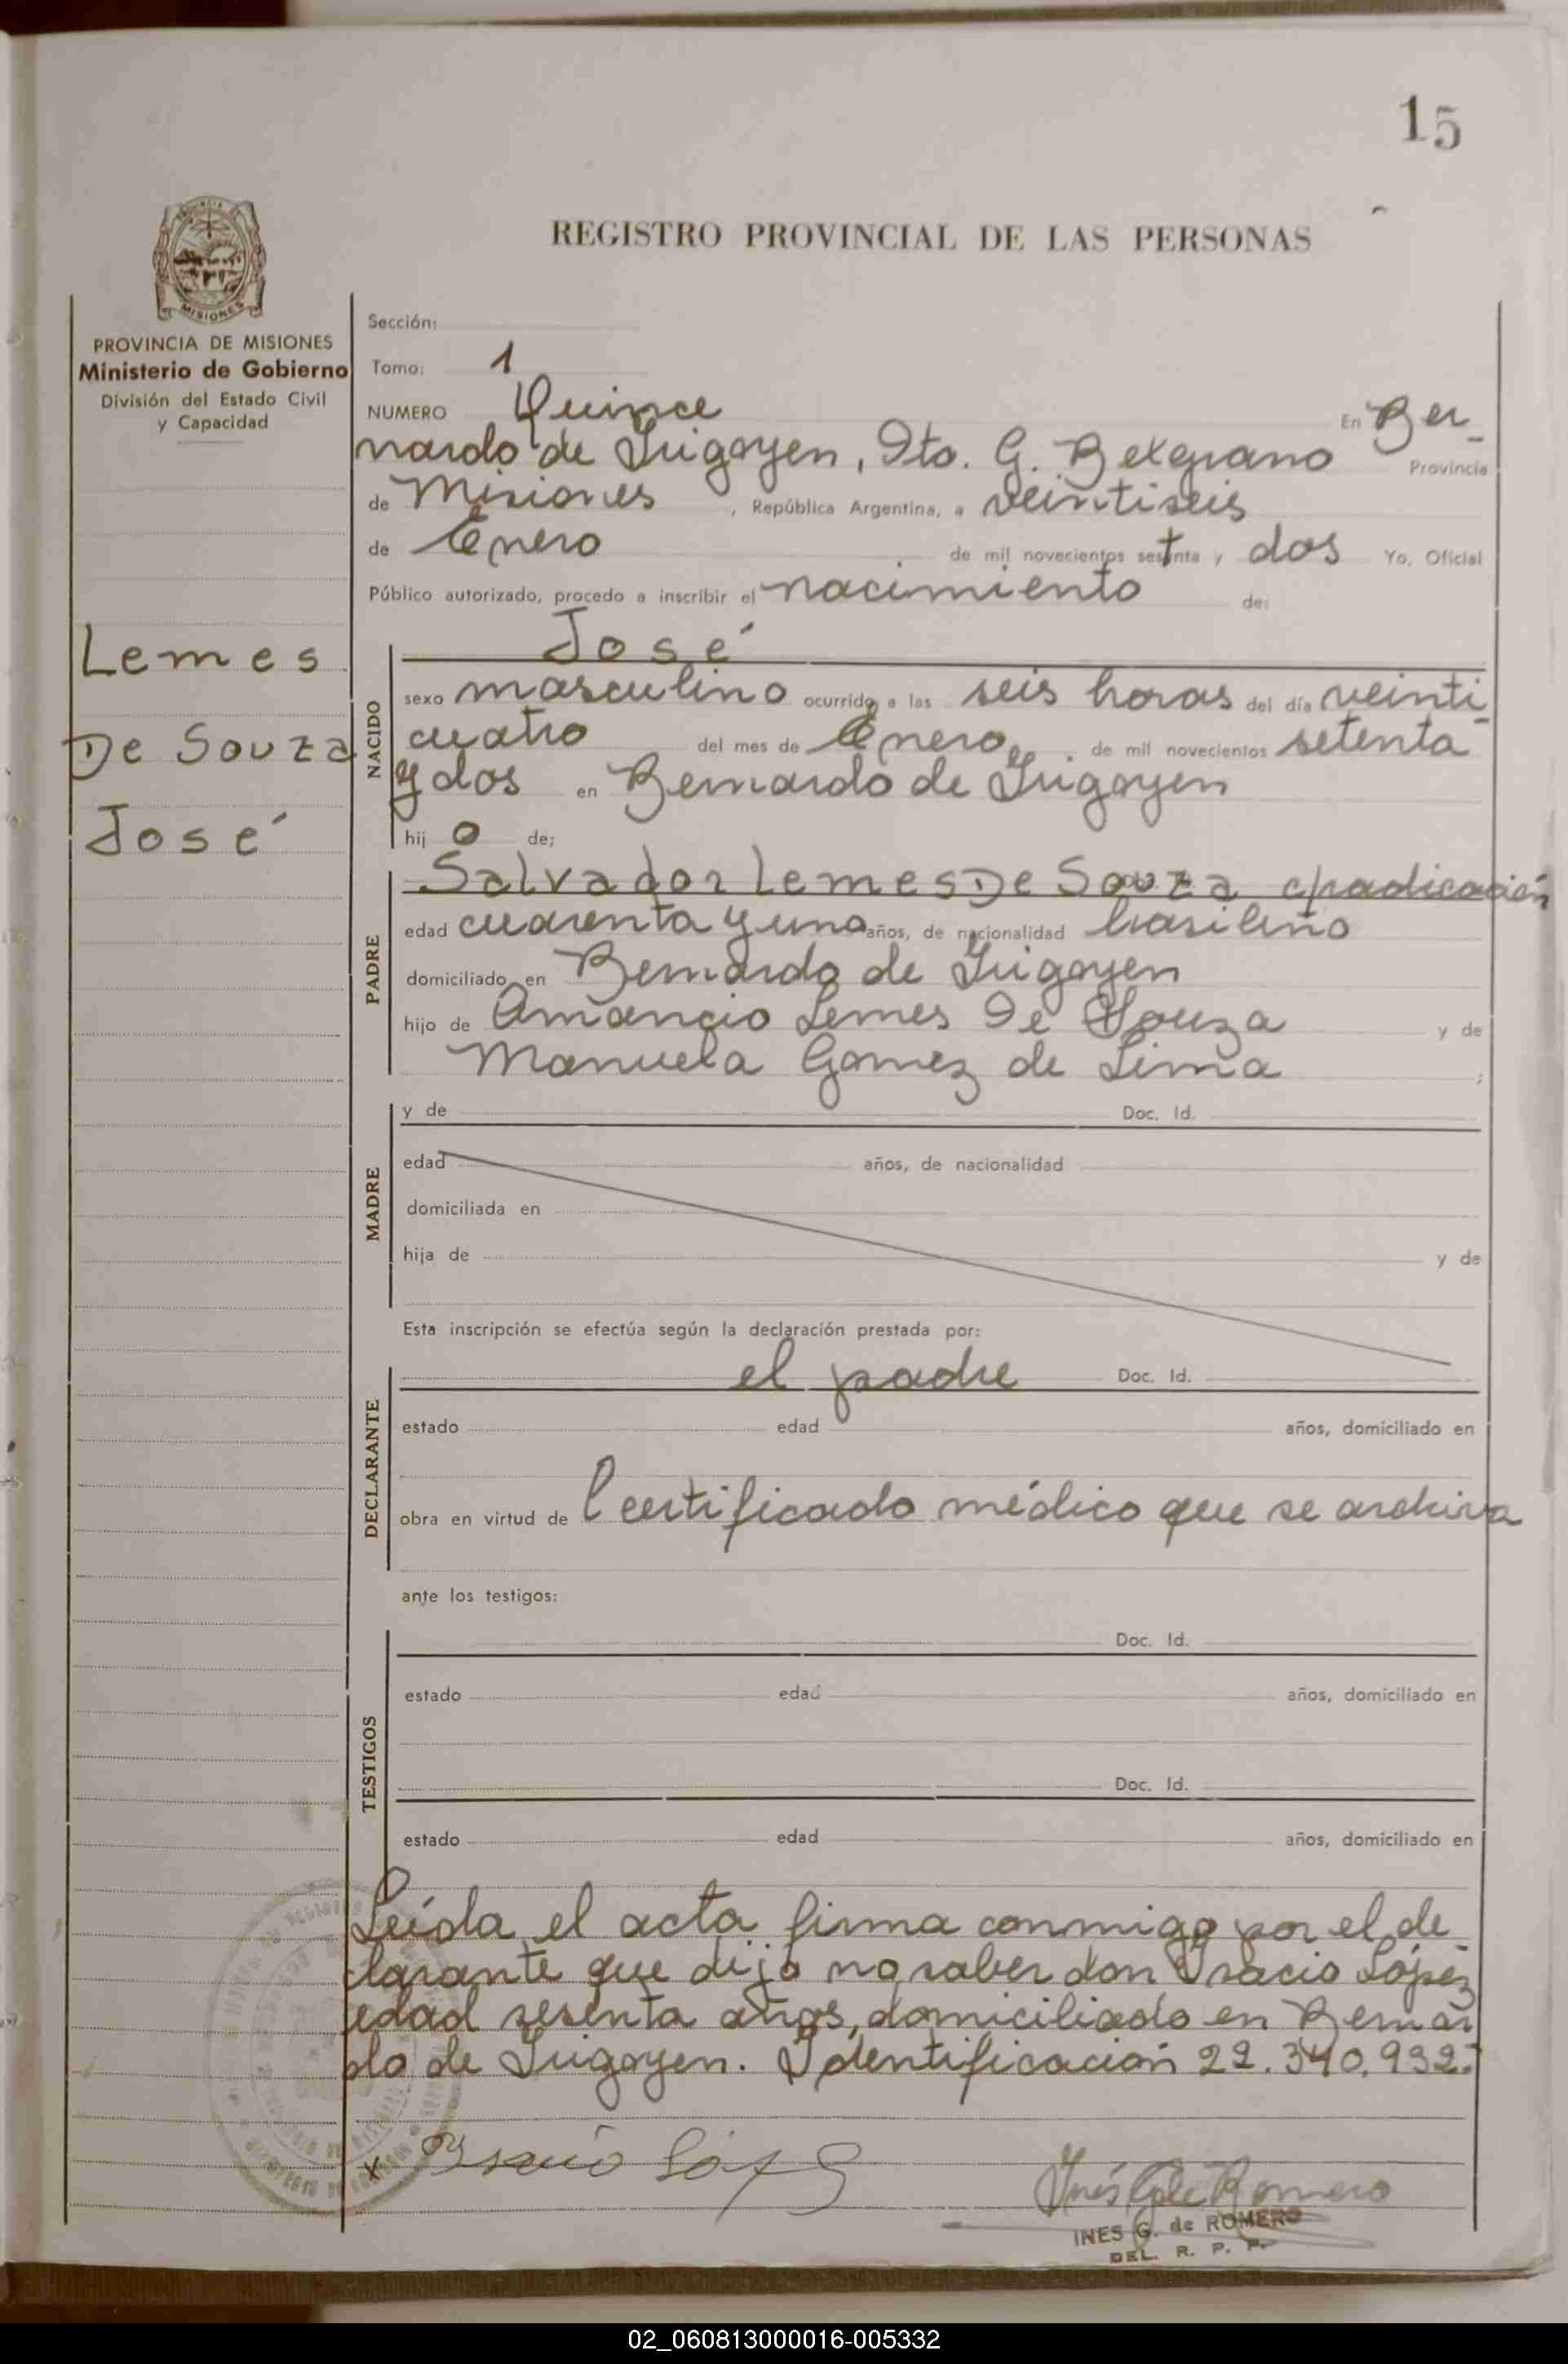 15
REGISTRO PROVINCIAL DE LAS PERSONAS
MISIONES
PROVINCIA DE MISIONES
Ministerio de Gobierno
División del Estado Civil
y Capacidad
Lemes
De Souza
José
Sección:
Tomo: 1
NUMERO Quince En Ber-
nardo de Irigoyen, Dto. G. Belgrano Provincia
de Misiones, República Argentina, a veintiseis
de Enero de mil novecientos setenta y dos Yo, Oficial
Público autorizado, procedo a inscribir el nacimiento de:
NACIDO
José
sexo masculino ocurrido a las seis horas del día veinti-
cuatro del mes de Enero de mil novecientos setenta
y dos en Bernardo de Irigoyen
hij o de;
PADRE
Salvador Lemes De Souza c/radicación
edad cuarenta y uno años, de nacionalidad brasileño
domiciliado en Bernardo de Irigoyen
hijo de Amancio Lemes De Souza y de
Manuela Gomez de Lima ;
MADRE
y de Doc. Id.
edad años, de nacionalidad
domiciliada en
hija de y de
Esta inscripción se efectúa según la declaración prestada por:
DECLARANTE
el padre Doc. Id.
estado edad años, domiciliado en
obra en virtud de l certificado médico que se archiva
ante los testigos:
TESTIGOS
Doc. Id.
estado edad años, domiciliado en
Doc. Id.
estado edad años, domiciliado en
Leída el acta firma conmigo por el de-
clarante que dijo no saber don Isacio López
edad sesenta años, domiciliado en Bernar
do de Irigoyen. Identificación 22.340.932.
x Isacio López
Inés G de Romero
INES G. de ROMERO
DEL. R. P. P.
02_060813000016-005332